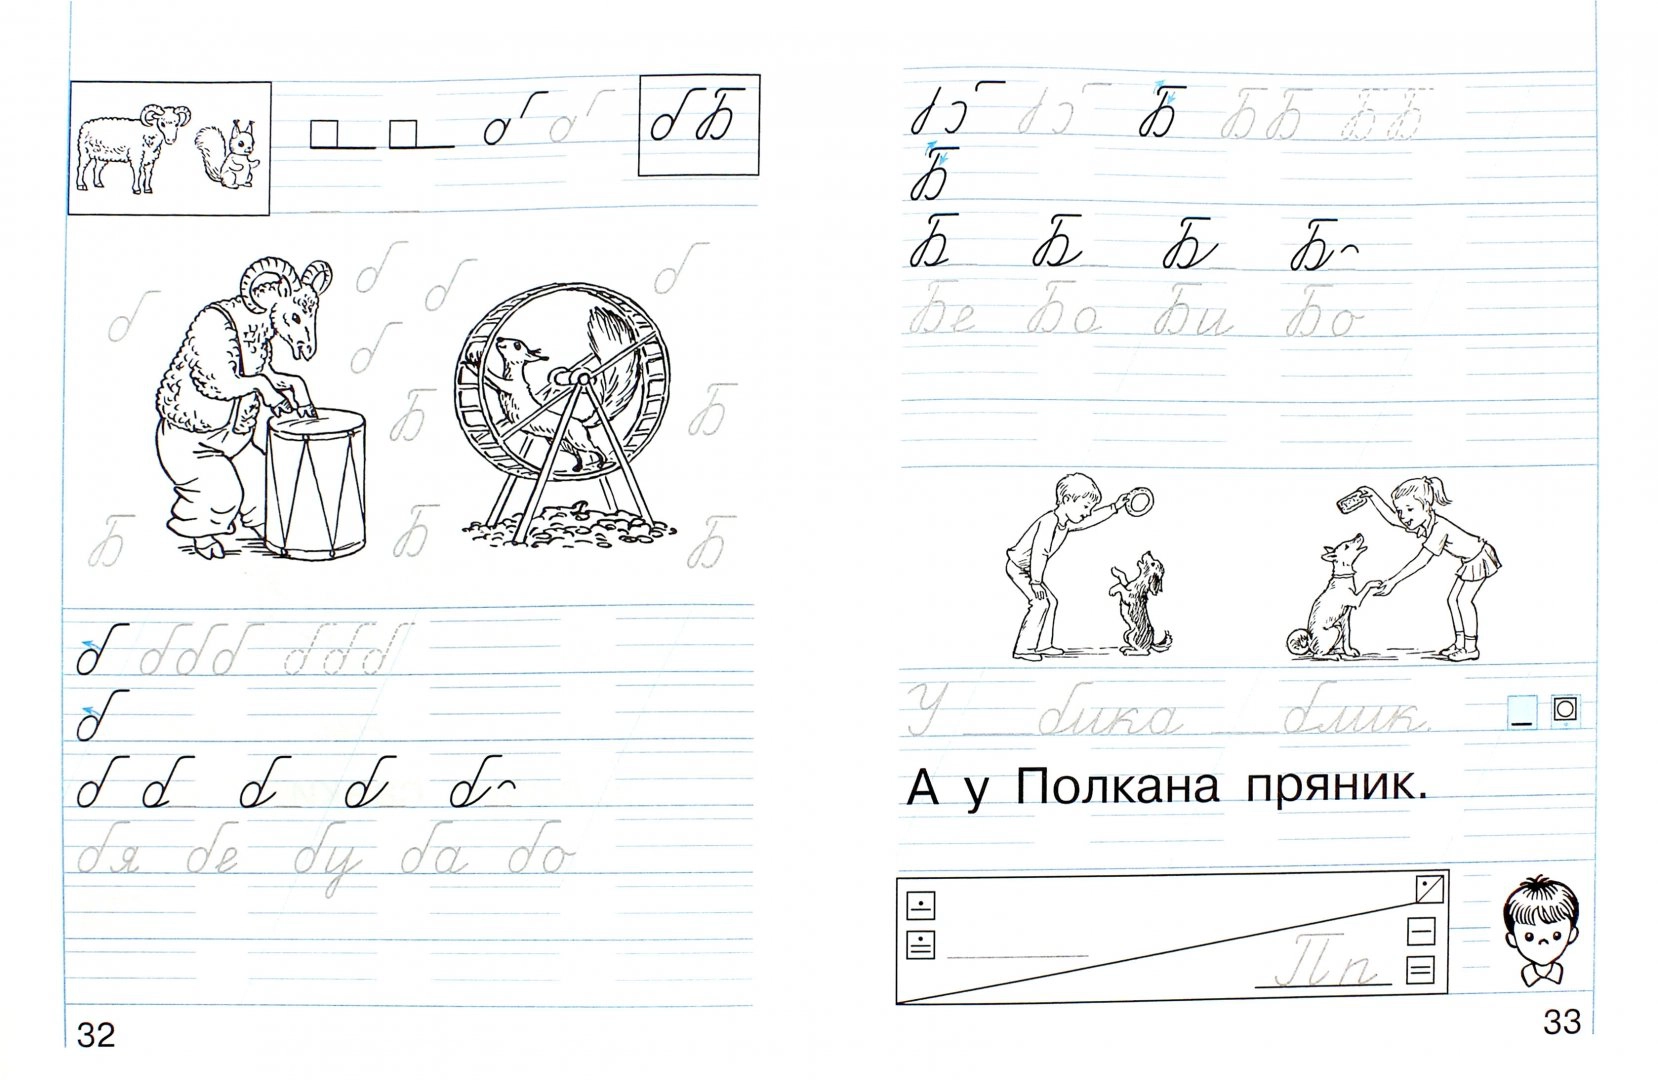 б Б
б б б
б б
Б Б
Б Б Б
б б б б б б б
б
б б б б б
бя бе бу ба бо
32
Б Б Б Б Б
Б
Б Б Б Б
Бе Ба Би Бо
У __бика __блик.
А у Полкана пряник.
Пп
33